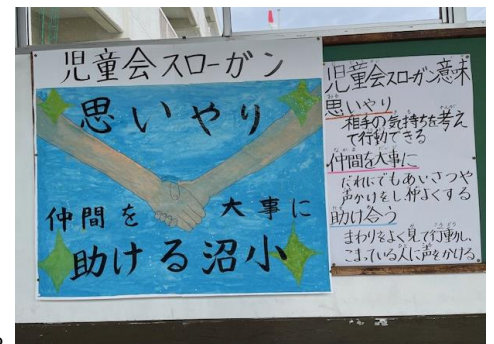 児童会スローガン
思いやり
仲間を大事に
助ける沼小
児童会スローガン意味
思いやり
相手の気持ちを考え
て行動できる
仲間を大事に
だれにでもあいさつや
声かけをし仲よくする
助け合う
まわりをよく見て行動し、
こまっている人に声をかける